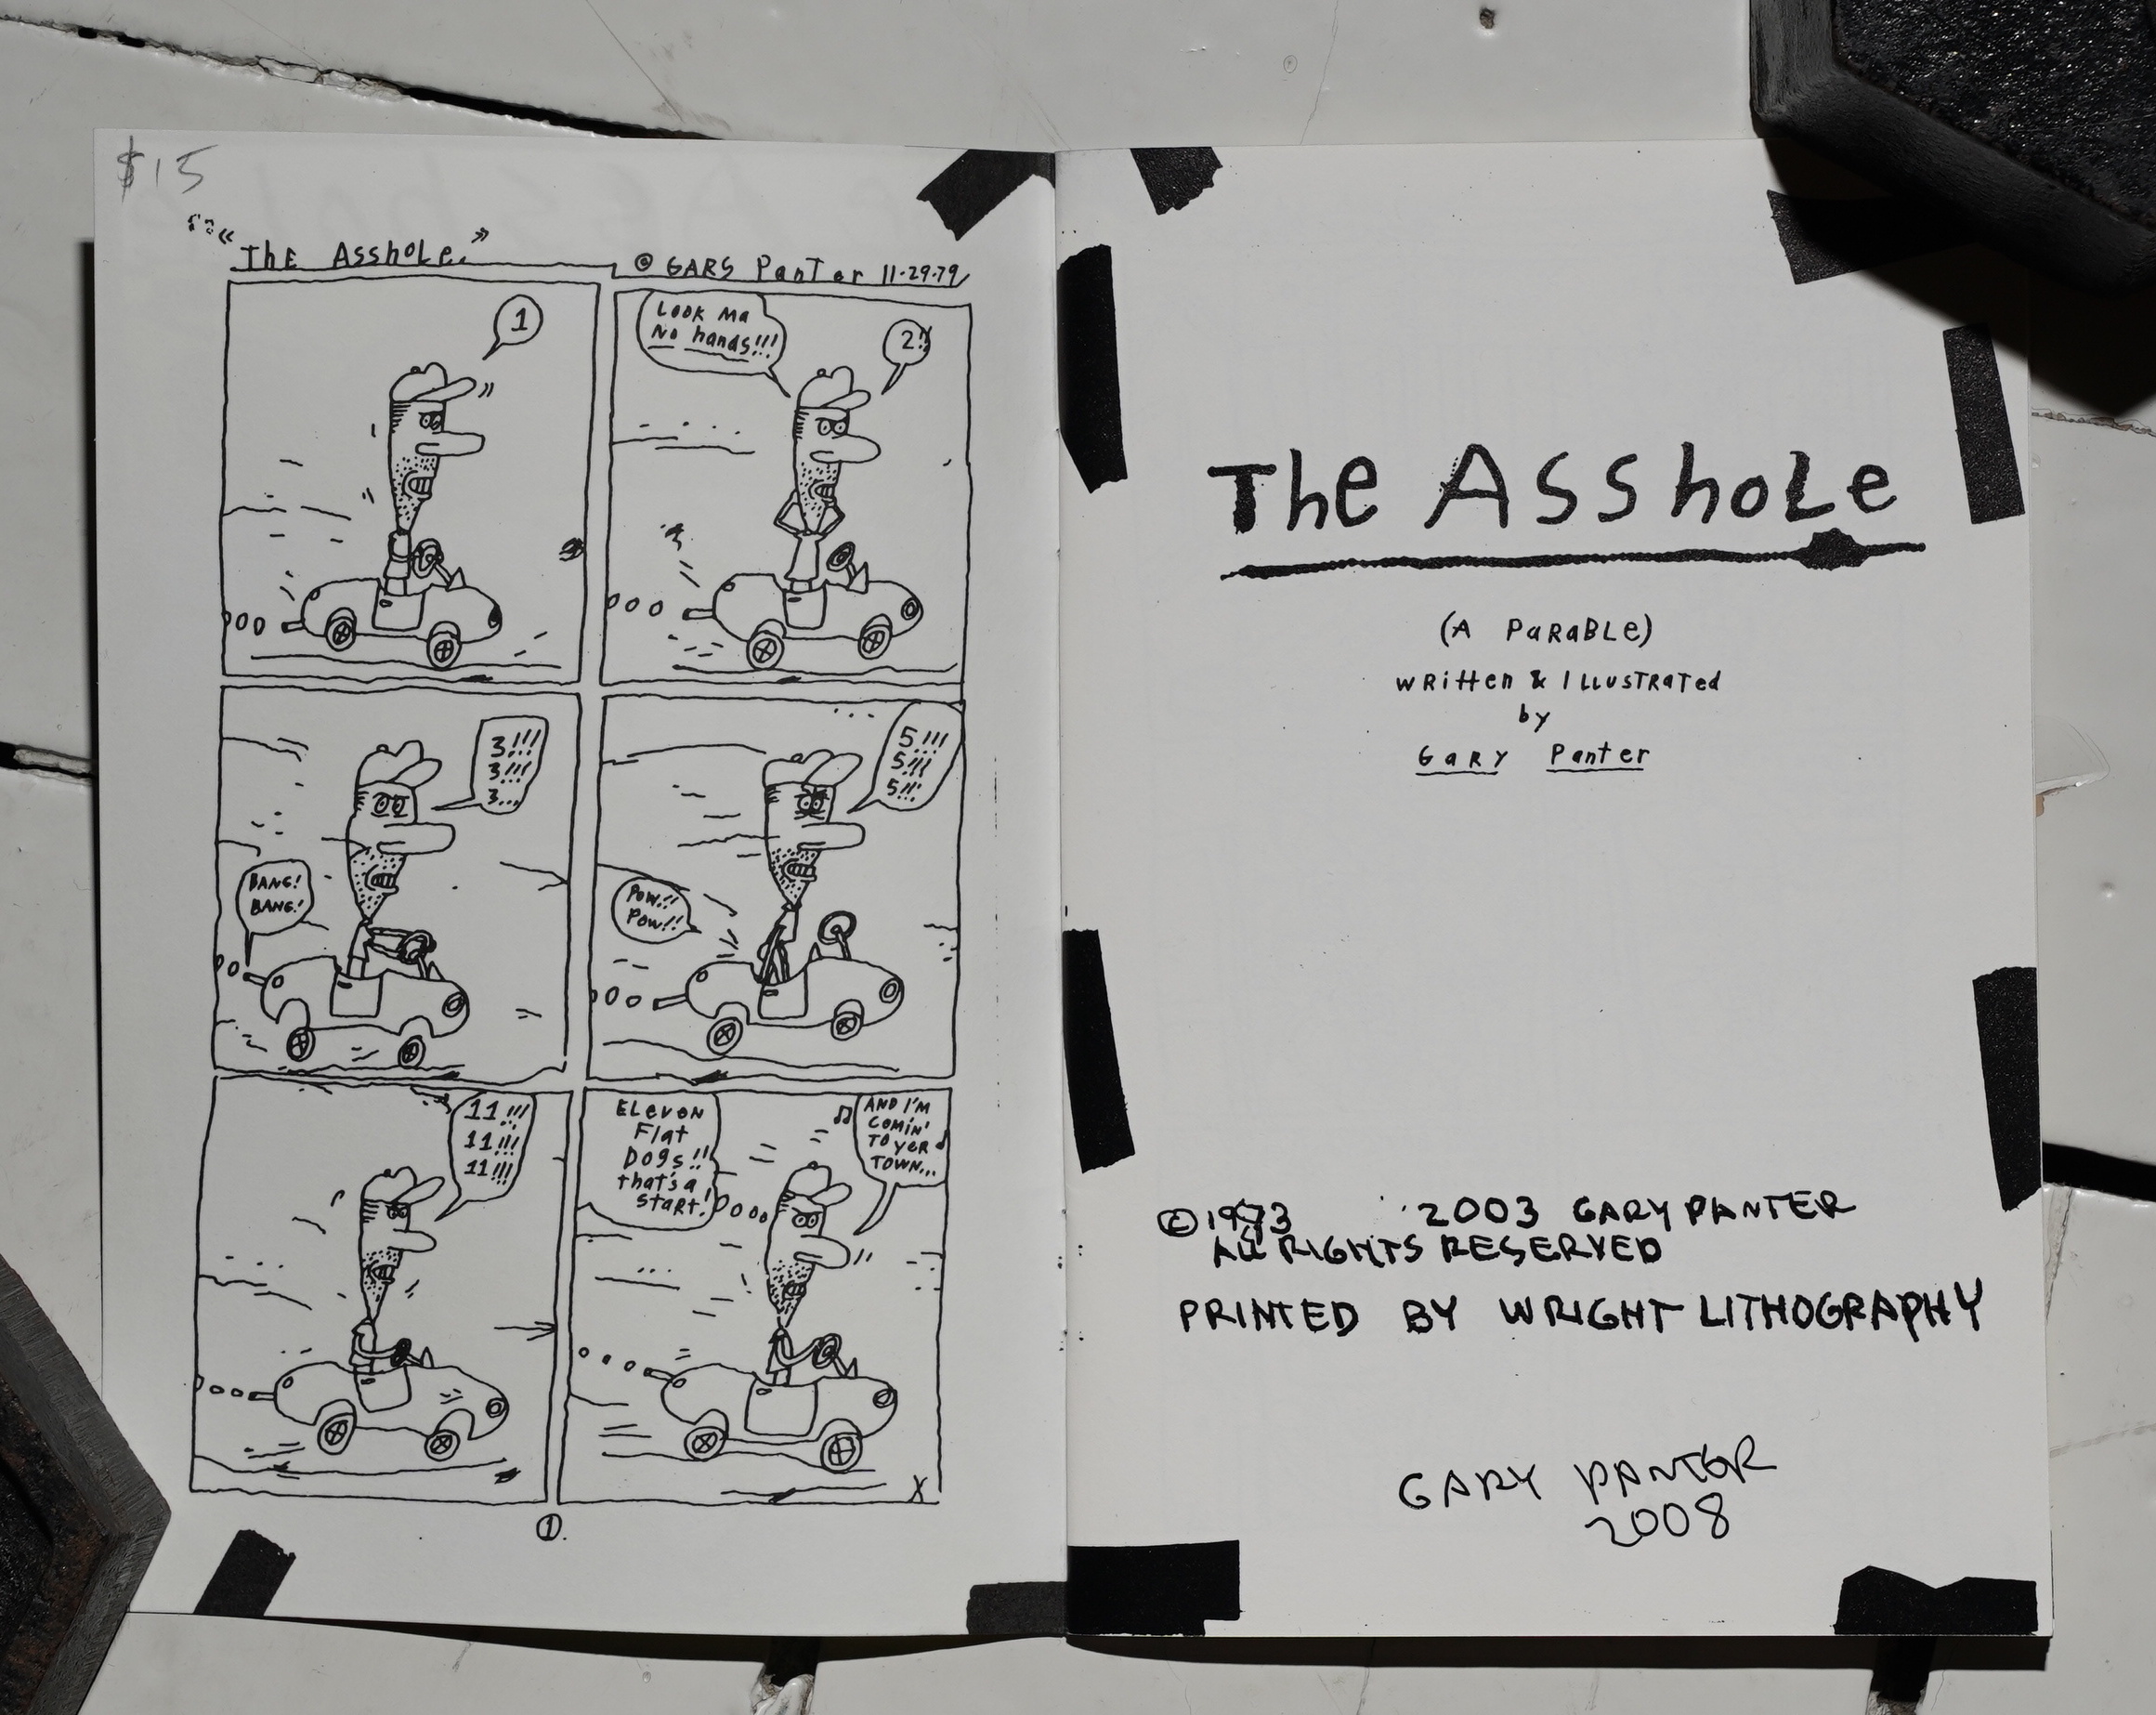 $15
"The Asshole."
© GARS Panter 11-29-79
1
Look Ma
No hands!!!
2!!
3!!!
3!!!
3...
BANG!
BANG!
5!!!
5!!!
5!!!
Pow!!
Pow!!
11!!!
11!!!
11!!!
Eleven
Flat
Dogs!!
that's a
start!
AND I'M
COMIN'
TO YER
TOWN...
X
1.
The Asshole
(A Parable)
Written & Illustrated
by
Gary Panter
© 1973 2003 GARY PANTER
ALL RIGHTS RESERVED
PRINTED BY WRIGHT LITHOGRAPHY
GARY PANTER
2008